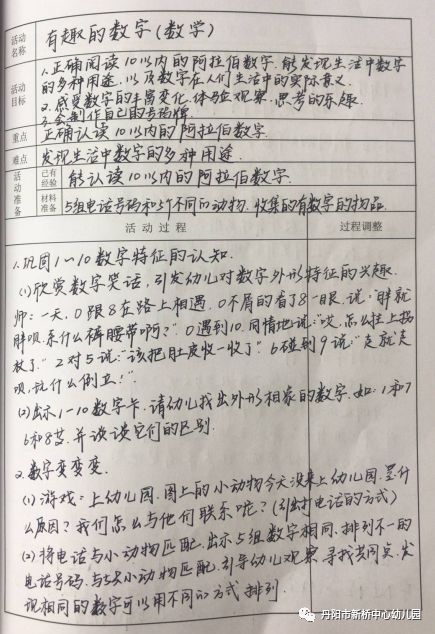 活动名称 有趣的数字(数学)
活动目标 1.正确阅读10以内的阿拉伯数字,能发现生活中数字
的多种用途,以及数字在人们生活中的实际意义.
2.感受数字的丰富变化,体验观察、思考的乐趣.
3.会制作自己的号码牌.
重点 正确认读10以内的阿拉伯数字.
难点 发现生活中数字的多种用途.
活动准备 已有经验 能认读10以内的阿拉伯数字.
材料准备 5组电话号码和5个不同的动物.收集的有数字的物品.
活动过程 过程调整
1.巩固1~10数字特征的认知.
(1)欣赏数字笑话,引发幼儿对数字外形特征的兴趣.
师:一天,0跟8在路上相遇,0不屑的看了8一眼说"胖就
胖呗,系什么裤腰带啊?"0遇到10,同情地说:"哎,怎么拄上拐
杖了."2对5说:"该把肚皮收一收了"6碰到9说"走就走
呗,玩什么倒立!"
(2)出示1-10数字卡.请幼儿找出外形相象的数字.如:1和7
6和8等.并谈谈它们的区别.
2.数字变变变.
(1)游戏:上幼儿园.图上的小动物今天没来上幼儿园.是什
么原因?我们怎么与他们联系呢?(引出打电话的方式)
(2)将电话与小动物匹配.出示5组数字相同,排列不一的
电话号码.与5只小动物匹配.引导幼儿观察,寻找共同点.发
现相同的数字可以用不同的方式排列.
丹阳市新桥中心幼儿园